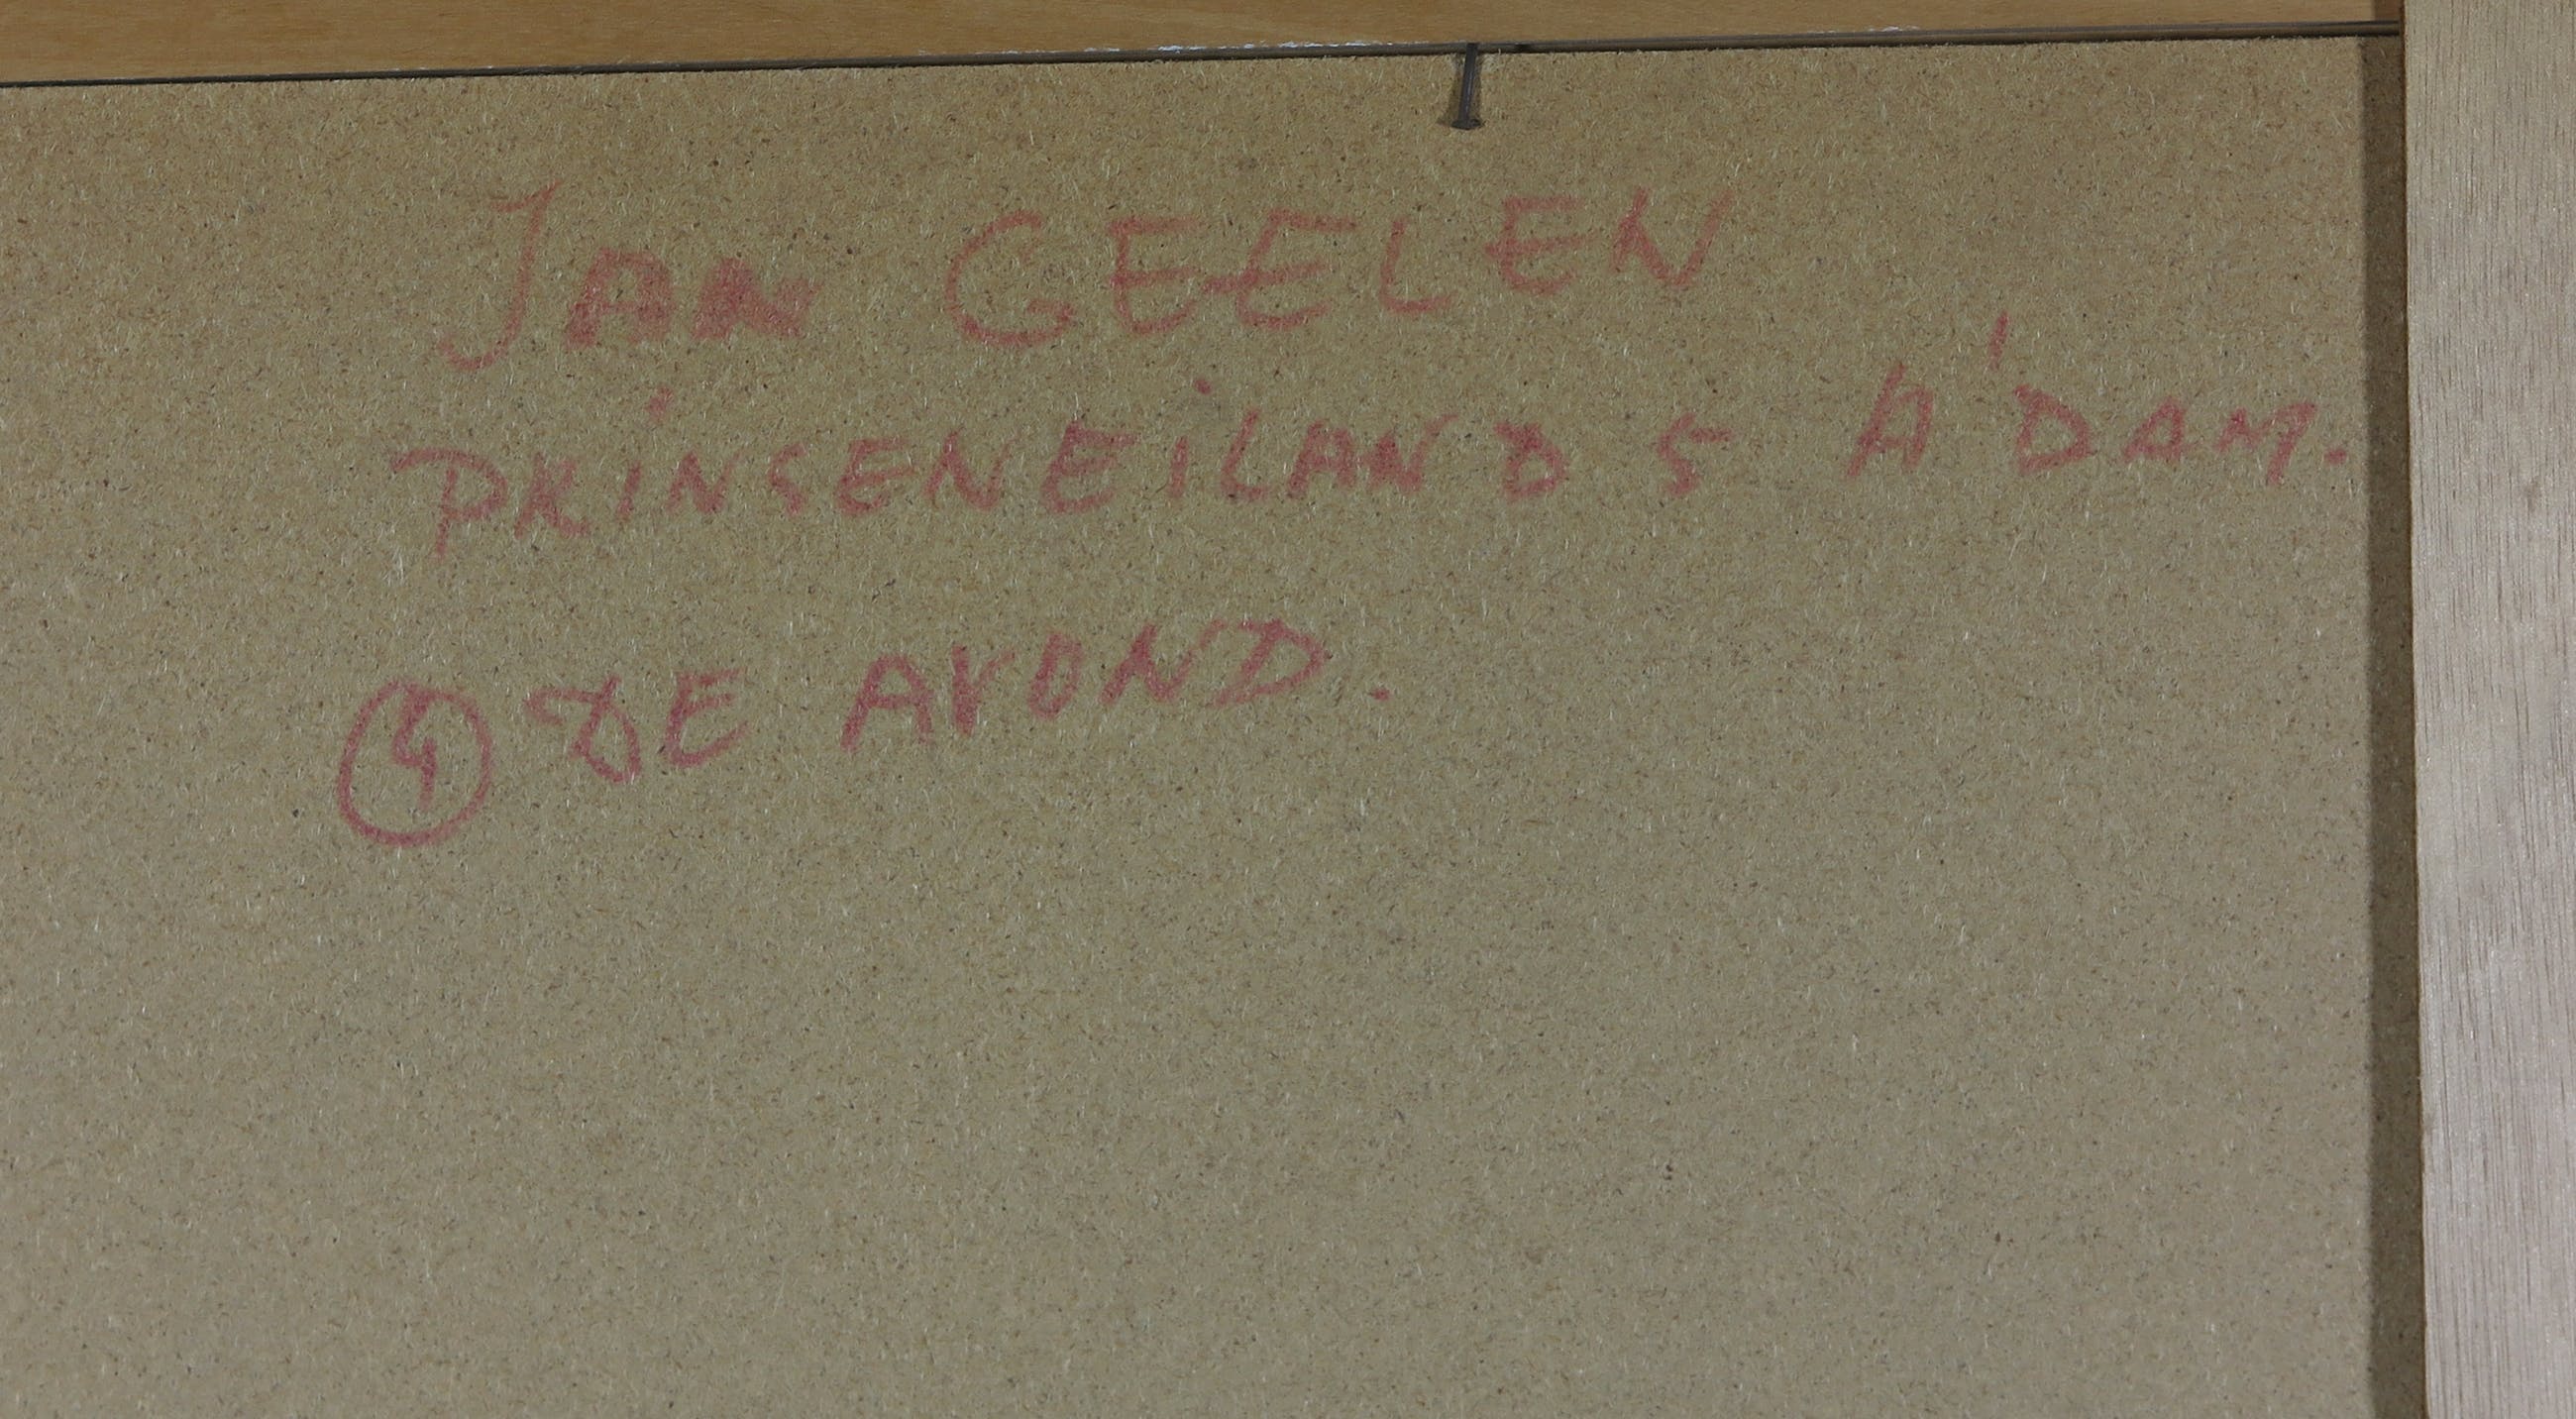 JAN GEELEN
PRINSENEILAND 5 A'DAM.
④ DE AVOND.